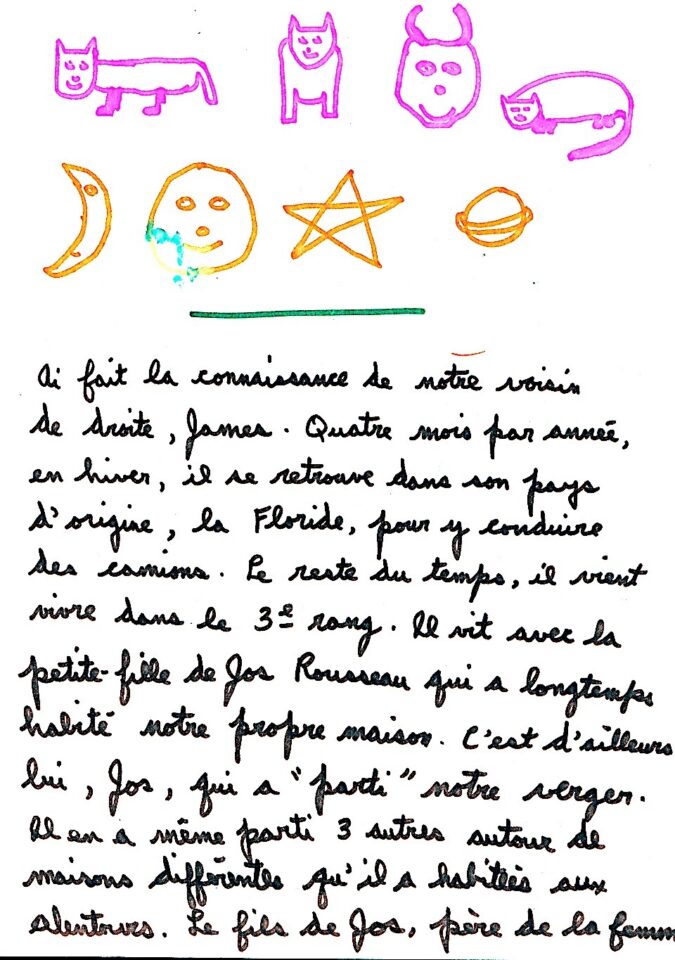 Ai fait la connaissance de notre voisin
de droite, James. Quatre mois par année,
en hiver, il se retrouve dans son pays
d'origine, la Floride, pour y conduire
des camions. Le reste du temps, il vient
vivre dans le 3e rang. Il vit avec la
petite-fille de Jos Rousseau qui a longtemps
habité notre propre maison. C'est d'ailleurs
lui, Jos, qui a "parti" notre verger.
Il en a même parti 3 autres autour de
maisons différentes qu'il a habitées aux
alentours. Le fils de Jos, père de la femm